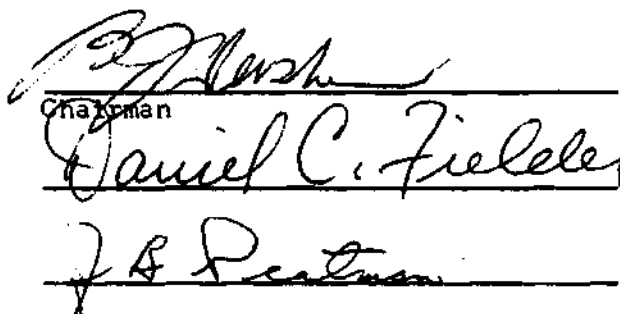 Chairman
Daniel C. Fielder
J B Peatman